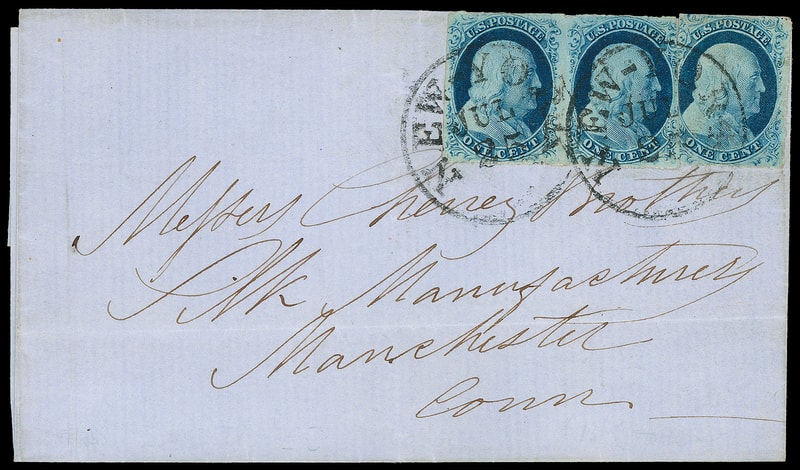 U.S. POSTAGE U.S. POSTAGE U.S. POSTAGE
NEW-YORK NEW-YORK
JUL JUL
ONE CENT ONE CENT ONE CENT
Messrs Cheney Brothers
Silk Manufacturers
Manchester
Conn